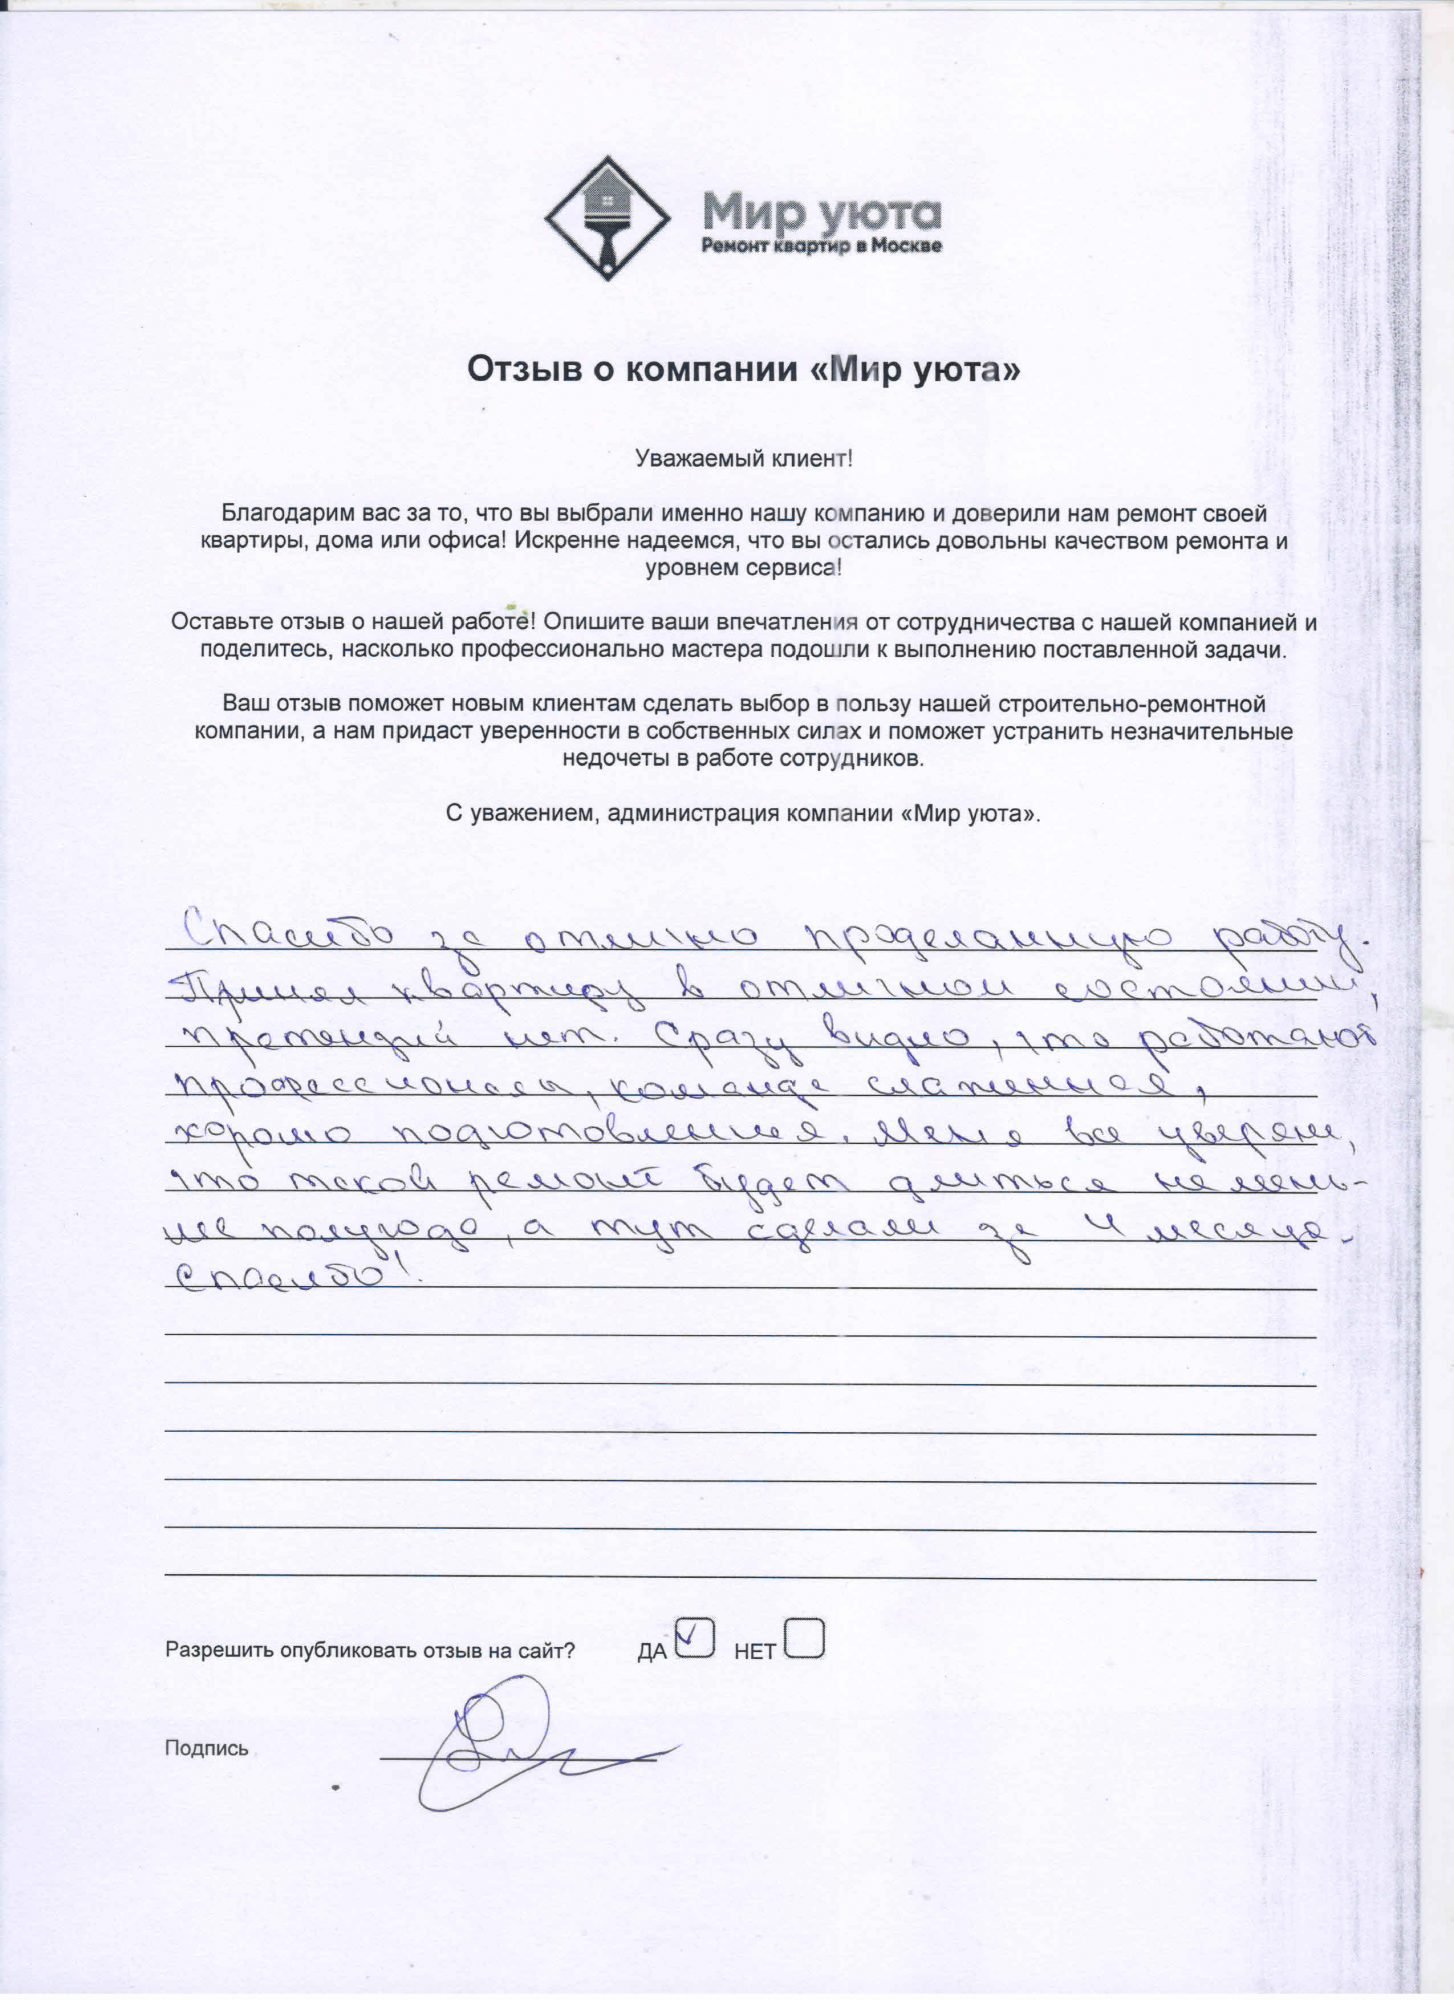 Мир уюта
Ремонт квартир в Москве
Отзыв о компании «Мир уюта»
Уважаемый клиент!
Благодарим вас за то, что вы выбрали именно нашу компанию и доверили нам ремонт своей
квартиры, дома или офиса! Искренне надеемся, что вы остались довольны качеством ремонта и
уровнем сервиса!
Оставьте отзыв о нашей работе! Опишите ваши впечатления от сотрудничества с нашей компанией и
поделитесь, насколько профессионально мастера подошли к выполнению поставленной задачи.
Ваш отзыв поможет новым клиентам сделать выбор в пользу нашей строительно-ремонтной
компании, а нам придаст уверенности в собственных силах и поможет устранить незначительные
недочеты в работе сотрудников.
С уважением, администрация компании «Мир уюта».
Спасибо за отлично проделанную работу.
Принял квартиру в отличном состоянии,
претензий нет. Сразу видно, что работают
профессионалы, команда слаженная,
хорошо подготовленная. Меня все уверяли,
что такой ремонт будет длиться не мень-
ше полугода, а тут сделали за 4 месяца.
Спасибо!
Разрешить опубликовать отзыв на сайт? ДА НЕТ
Подпись